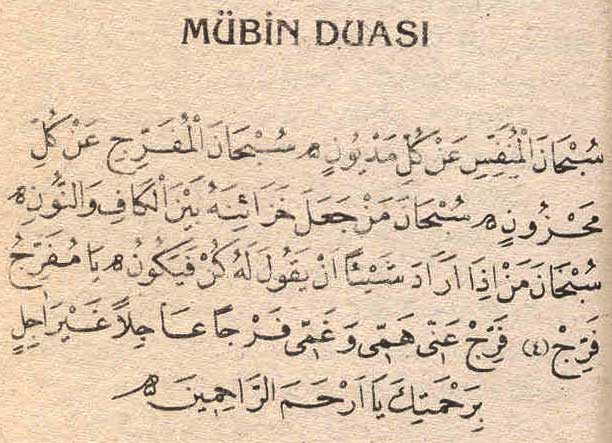 MÜBİN DUASI
سُبْحَانَ الْمُنَفِّسِ عَنْ كُلِّ مَدْيُونٍ ۞ سُبْحَانَ الْمُفَرِّجِ عَنْ كُلِّ
مَحْزُونٍ ۞ سُبْحَانَ مَنْ جَعَلَ خَزَائِنَهُ بَيْنَ الْكَافِ وَالنُّونِ ۞
سُبْحَانَ مَنْ اِذَا اَرَادَ شَيْئًا اَنْ يَقُولَ لَهُ كُنْ فَيَكُونُ ۞ يَا مُفَرِّجُ
فَرِّجْ (٤) فَرِّجْ عَنّٖى هَمّٖى وَ غَمّٖى فَرْجًا عَاجِلاً غَيْرَ اٰجِلٍ
بِرَحْمَتِكَ يَا اَرْحَمَ الرَّاحِمٖينَ ۞